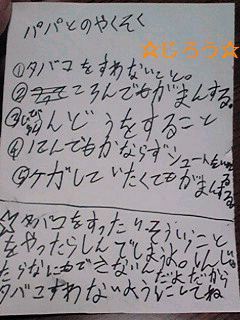 パパとのやくそく
☆じろう☆
①タバコをすわないこと。
② ころんでもがまんする。
③じぶんでんどうをすること
④1てんでもかならずシュートを
⑤ケガしていたくてもがまんする
☆タバコをすったり、そういうこと
をやったらしんでしまうよ。しんじ
たらなにもできないんだよだから
タバコすわないようにしてね